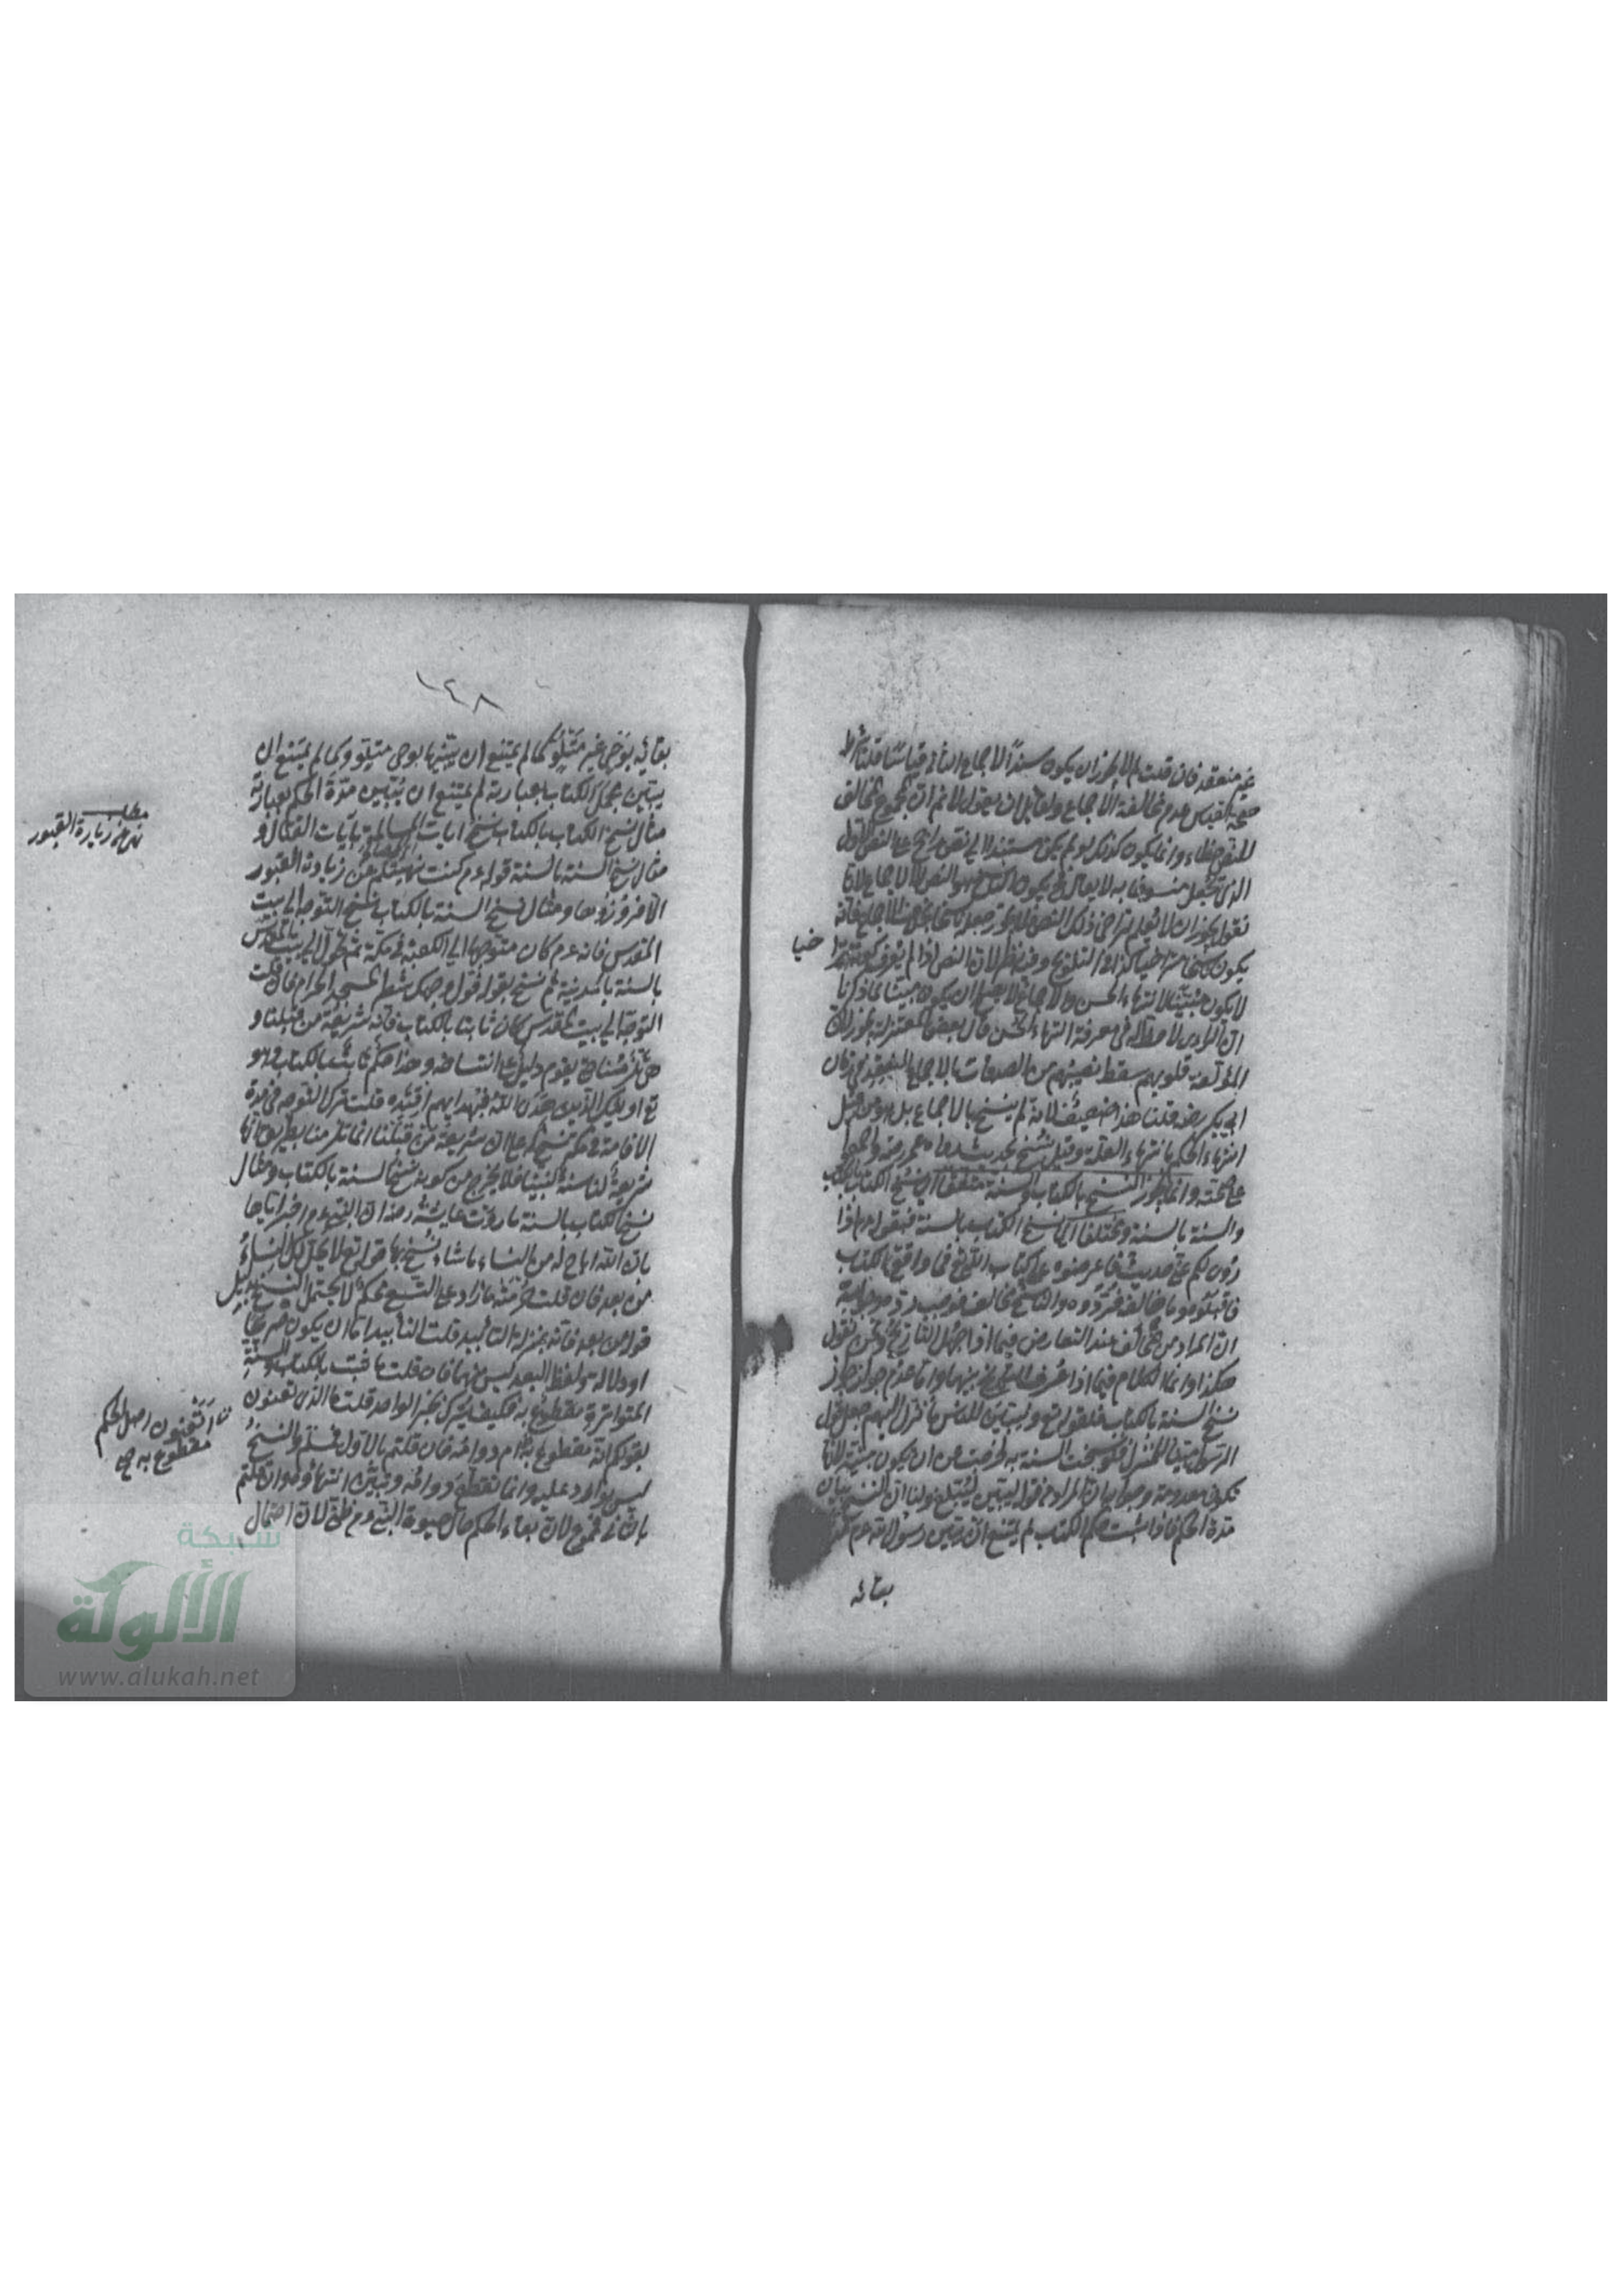 غير منعقد فان قلت لم لا يجوز ان يكون سند الاجماع الثاني قياسا قلنا شرط
صحة القياس عدم مخالفة الاجماع ولقائل ان يقول لا نم ان المجموع مخالف
للنص خطاء وانما يكون كذلك لو لم يكن مستندا الى نص راجح على النص الاول
الذي تجعل منسوخا به لا يقال فح يكون الناسخ هو النص لا الاجماع لانا
نقول يجوز ان لا يعلم تراخي ذلك النص فلا يجوز جعله ناسخا بخلاف الاجماع فانه
يكون متراخيا كذا في التلويح وفيه نظر لان النص اذا لم يعرف كونه مترا
خيا
لا يكون مبينا لانتهاء الحسن والاجماع لا يصلح ان يكون مبينا لما ذكرنا
ان الراي لا مدخل له في معرفة انتهاء الحسن قال بعض المعتزلة يجوز لان
المؤلفة قلوبهم سقط نصيبهم من الصدقات بالاجماع المنعقد في زمان
ابي بكر رضه قلنا هذا ضعيف لانه لم ينسخ بالاجماع بل هو من قبيل
انتهاء الحكم بانتهاء العلة وقيل نسخ بحديث رواه عمر رضه واجمعوا
على صحته وانما يجوز النسخ بالكتاب والسنة متفقا اي نسخ الكتاب بالكتاب
والسنة بالسنة ومختلفا اي نسخ الكتاب بالسنة فبقوله م اذا
روى لكم عني حديث فاعرضوه على كتاب الله تع فما وافق الكتاب
فاقبلوه وما خالف فردوه والناسخ مخالف فوجب رده وجوابه
ان المراد من المخالف عند التعارض فيما اذا جهل التاريخ ونحن نقول
هكذا وانما الكلام فيما اذا عرف الناسخ من بينهما واما عدم جواز
نسخ السنة بالكتاب فلقوله تع ولتبين للناس ما نزل اليهم جعل قول
الرسول مبينا للمنزل فلو نسخت السنة به لخرجت عن ان يكون مبينة لانها
تكون معدومة وجوابه ان المراد من قوله لتبين لتبلغ ولنا ان النسخ بيان
مدة الحكم فاذا ثبت حكم الكتاب لم يمتنع ان يبين رسول الله عم
بقائه
١٤٨
بقائه بوحي غير متلو كما لم يمتنع ان يبينها بوحي متلو وكما لم يمتنع ان
يبين مجمل الكتاب بعبارته لم يمتنع ان يبين مدة الحكم بعبارته
مثال نسخ الكتاب بالكتاب نسخ ايات المسالمة بايات القتال و
مثال نسخ السنة بالسنة قوله م كنت نهيتكم عن زيارة القبور
مطلب
زيارة القبور
الا فزوروها ومثال نسخ السنة بالكتاب نسخ التوجه الى بيت
المقدس فانه عم كان متوجها الى الكعبة في مكة ثم تحول الى بيت المقدس
بالسنة بالمدينة ثم نسخ بقوله فول وجهك شطر المسجد الحرام فان قلت
التوجه الى بيت المقدس كان ثابتا بالكتاب فانه شريعة من قبلنا و
هي تلزمنا حتى يقوم دليل على انتساخه وهذا حكم ثابت بالكتاب وهو
تع اوليك الذين هدى الله فبهداهم اقتده قلت ترك التوجه في مدة
الاقامة في مكة نسخ على ان شريعة من قبلنا انما تلزمنا بطريق انها
شريعة لنا سنة لنبينا فلا يخرج من كونه نسخ السنة بالكتاب ومثال
نسخ الكتاب بالسنة ما روت عايشة رضه ان النبي م اخبر اياها
بان الله اباح له من النساء ما شاء نسخ بها قوله تع لا يحل لك النساء
من بعد فان قلت حرمة ما زاد على التسع محكم لا يحتمل النسخ بدليل
قوله من بعد فانه بمنزلة التابيد قلت التابيد اما ان يكون صريحا
او دلالة ولفظ البعد ليس منهما فان قلت ما ثبت بالكتاب والسنة
المتواترة مقطوع به فكيف يترك بخبر الواحد قلت ما الذي تعنون
ما تعنون اصل الحكم
مقطوع به صح
بقولكم انه مقطوع به ام دوامه فان قلتم بالاول فمسلم والنسخ
ليس بوارد عليه وانما نقطع دوامه ونبين انتهاؤه وان قلتم
بالثاني فممنوع لان بقاء الحكم حال حيوة النبي م ظني لان احتمال
شبكة
الألوكة
www.alukah.net